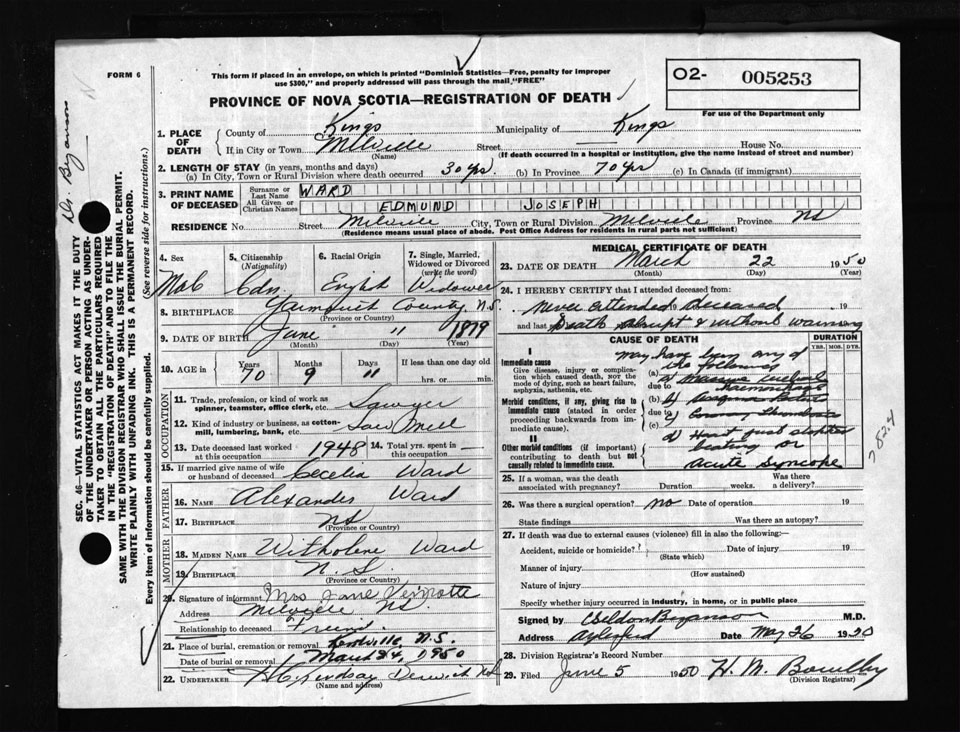 FORM 6
This form if placed in an envelope, on which is printed "Dominion Statistics—Free, penalty for improper
use $300," and properly addressed will pass through the mail "FREE"
O2- 005253
For use of the Department only
PROVINCE OF NOVA SCOTIA—REGISTRATION OF DEATH
Dr. Bezanson
SEC. 46—VITAL STATISTICS ACT MAKES IT THE DUTY
OF THE UNDERTAKER OR PERSON ACTING AS UNDER-
TAKER TO OBTAIN ALL THE PARTICULARS REQUIRED
IN THE "REGISTRATION OF DEATH" AND TO FILE THE
SAME WITH THE DIVISION REGISTRAR WHO SHALL ISSUE THE BURIAL PERMIT.
WRITE PLAINLY WITH UNFADING INK. THIS IS A PERMANENT RECORD.
Every item of information should be carefully supplied. (See reverse side for instructions.)
1. PLACE OF DEATH
County of Kings Municipality of Kings
If in City or Town Melville Street House No.
(Name) (If death occurred in a hospital or institution, give the name instead of street and number)
2. LENGTH OF STAY (in years, months and days)
(a) In City, Town or Rural Division where death occurred 30 yrs. (b) In Province 70 yrs (c) In Canada (if immigrant)
3. PRINT NAME OF DECEASED
Surname or Last Name WARD
All Given or Christian Names EDMUND JOSEPH
RESIDENCE No. Street Melville City, Town or Rural Division Melville Province NS
(Residence means usual place of abode. Post Office Address for residents in rural parts not sufficient)
4. Sex Male
5. Citizenship (Nationality) Cdn.
6. Racial Origin English
7. Single, Married, Widowed or Divorced (write the word) Widower
8. BIRTHPLACE Yarmouth County, N.S.
(Province or Country)
9. DATE OF BIRTH June 11 1879
(Month) (Day) (Year)
10. AGE in Years 70 Months 9 Days 11 If less than one day old
hrs. or min.
OCCUPATION
11. Trade, profession, or kind of work as
spinner, teamster, office clerk, etc. Sawyer
12. Kind of industry or business, as cotton-
mill, lumbering, bank, etc. Saw Mill
13. Date deceased last worked at this occupation 1948
14. Total yrs. spent in this occupation
15. If married give name of wife or husband of deceased Cecelia Ward
FATHER
16. NAME Alexander Ward
17. BIRTHPLACE NS
(Province or Country)
MOTHER
18. MAIDEN NAME Ward
19. BIRTHPLACE N.S.
(Province or Country)
20. Signature of informant Mrs Jane
Address Melville NS.
Relationship to deceased Friend
21. Place of burial, cremation or removal N.S.
Date of burial or removal March 24, 1950
22. UNDERTAKER Lindsay Berwick NS
(Name and address)
MEDICAL CERTIFICATE OF DEATH
23. DATE OF DEATH March 22 1950
(Month) (Day) (Year)
24. I HEREBY CERTIFY that I attended deceased from:
Never attended deceased 19
and last Death abrupt & without warning
CAUSE OF DEATH DURATION
YRS. MOS. DYS.
may have been any of
the following
I
Immediate cause
Give disease, injury or complica-
tion which caused death, not the
mode of dying, such as heart failure,
asphyxia, asthenia, etc.
(a) a) Massive cerebral
due to haemorrhage
Morbid conditions, if any, giving rise to
immediate cause (stated in order
proceeding backwards from im-
mediate cause).
(b) b)
due to c) Coronary Thrombosis
(c)
II
Other morbid conditions (if important)
contributing to death but not
causally related to immediate cause.
d) Heart just stopped
beating or
Acute Syncope
782.4
25. If a woman, was the death associated with pregnancy? Duration weeks. Was there a delivery?
26. Was there a surgical operation? no Date of operation 19
State findings Was there an autopsy?
27. If death was due to external causes (violence) fill in also the following:—
Accident, suicide or homicide? Date of injury 19
(State which)
Manner of injury
(How sustained)
Nature of injury
Specify whether injury occurred in industry, in home, or in public place
Signed by Weldon Bezanson M.D.
Address Aylesford Date May 26 1950
28. Division Registrar's Record Number
29. Filed June 5 1950 H. M. Bowlby
(Division Registrar)